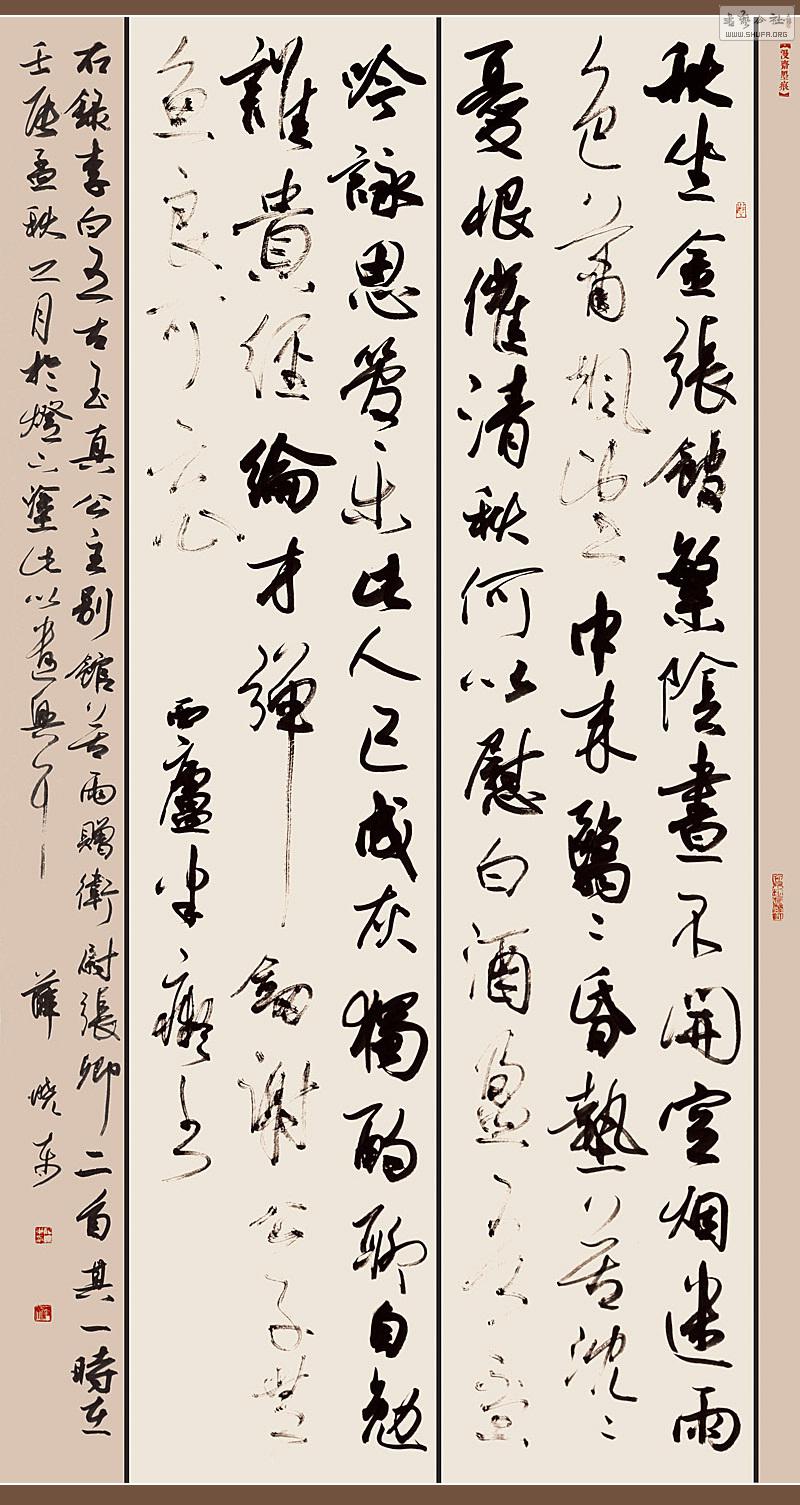 書藝公社
WWW.SHUFA.ORG
【漫齋墨痕】
秋坐金張館繁陰晝不開空烟迷雨
色蕭颯望中来翳〻昏墊苦沈〻
憂恨催清秋何以慰白酒盈吾盃
吟詠思管樂此人已成灰獨酌聊自勉
誰貴經綸才彈劍謝公子無
魚良可哀 西廬半癡書
右錄李白五古玉真公主別館苦雨贈衛尉張卿二首其一時在
壬辰孟秋之月於燈下塗此以遣興耳 薛曉東